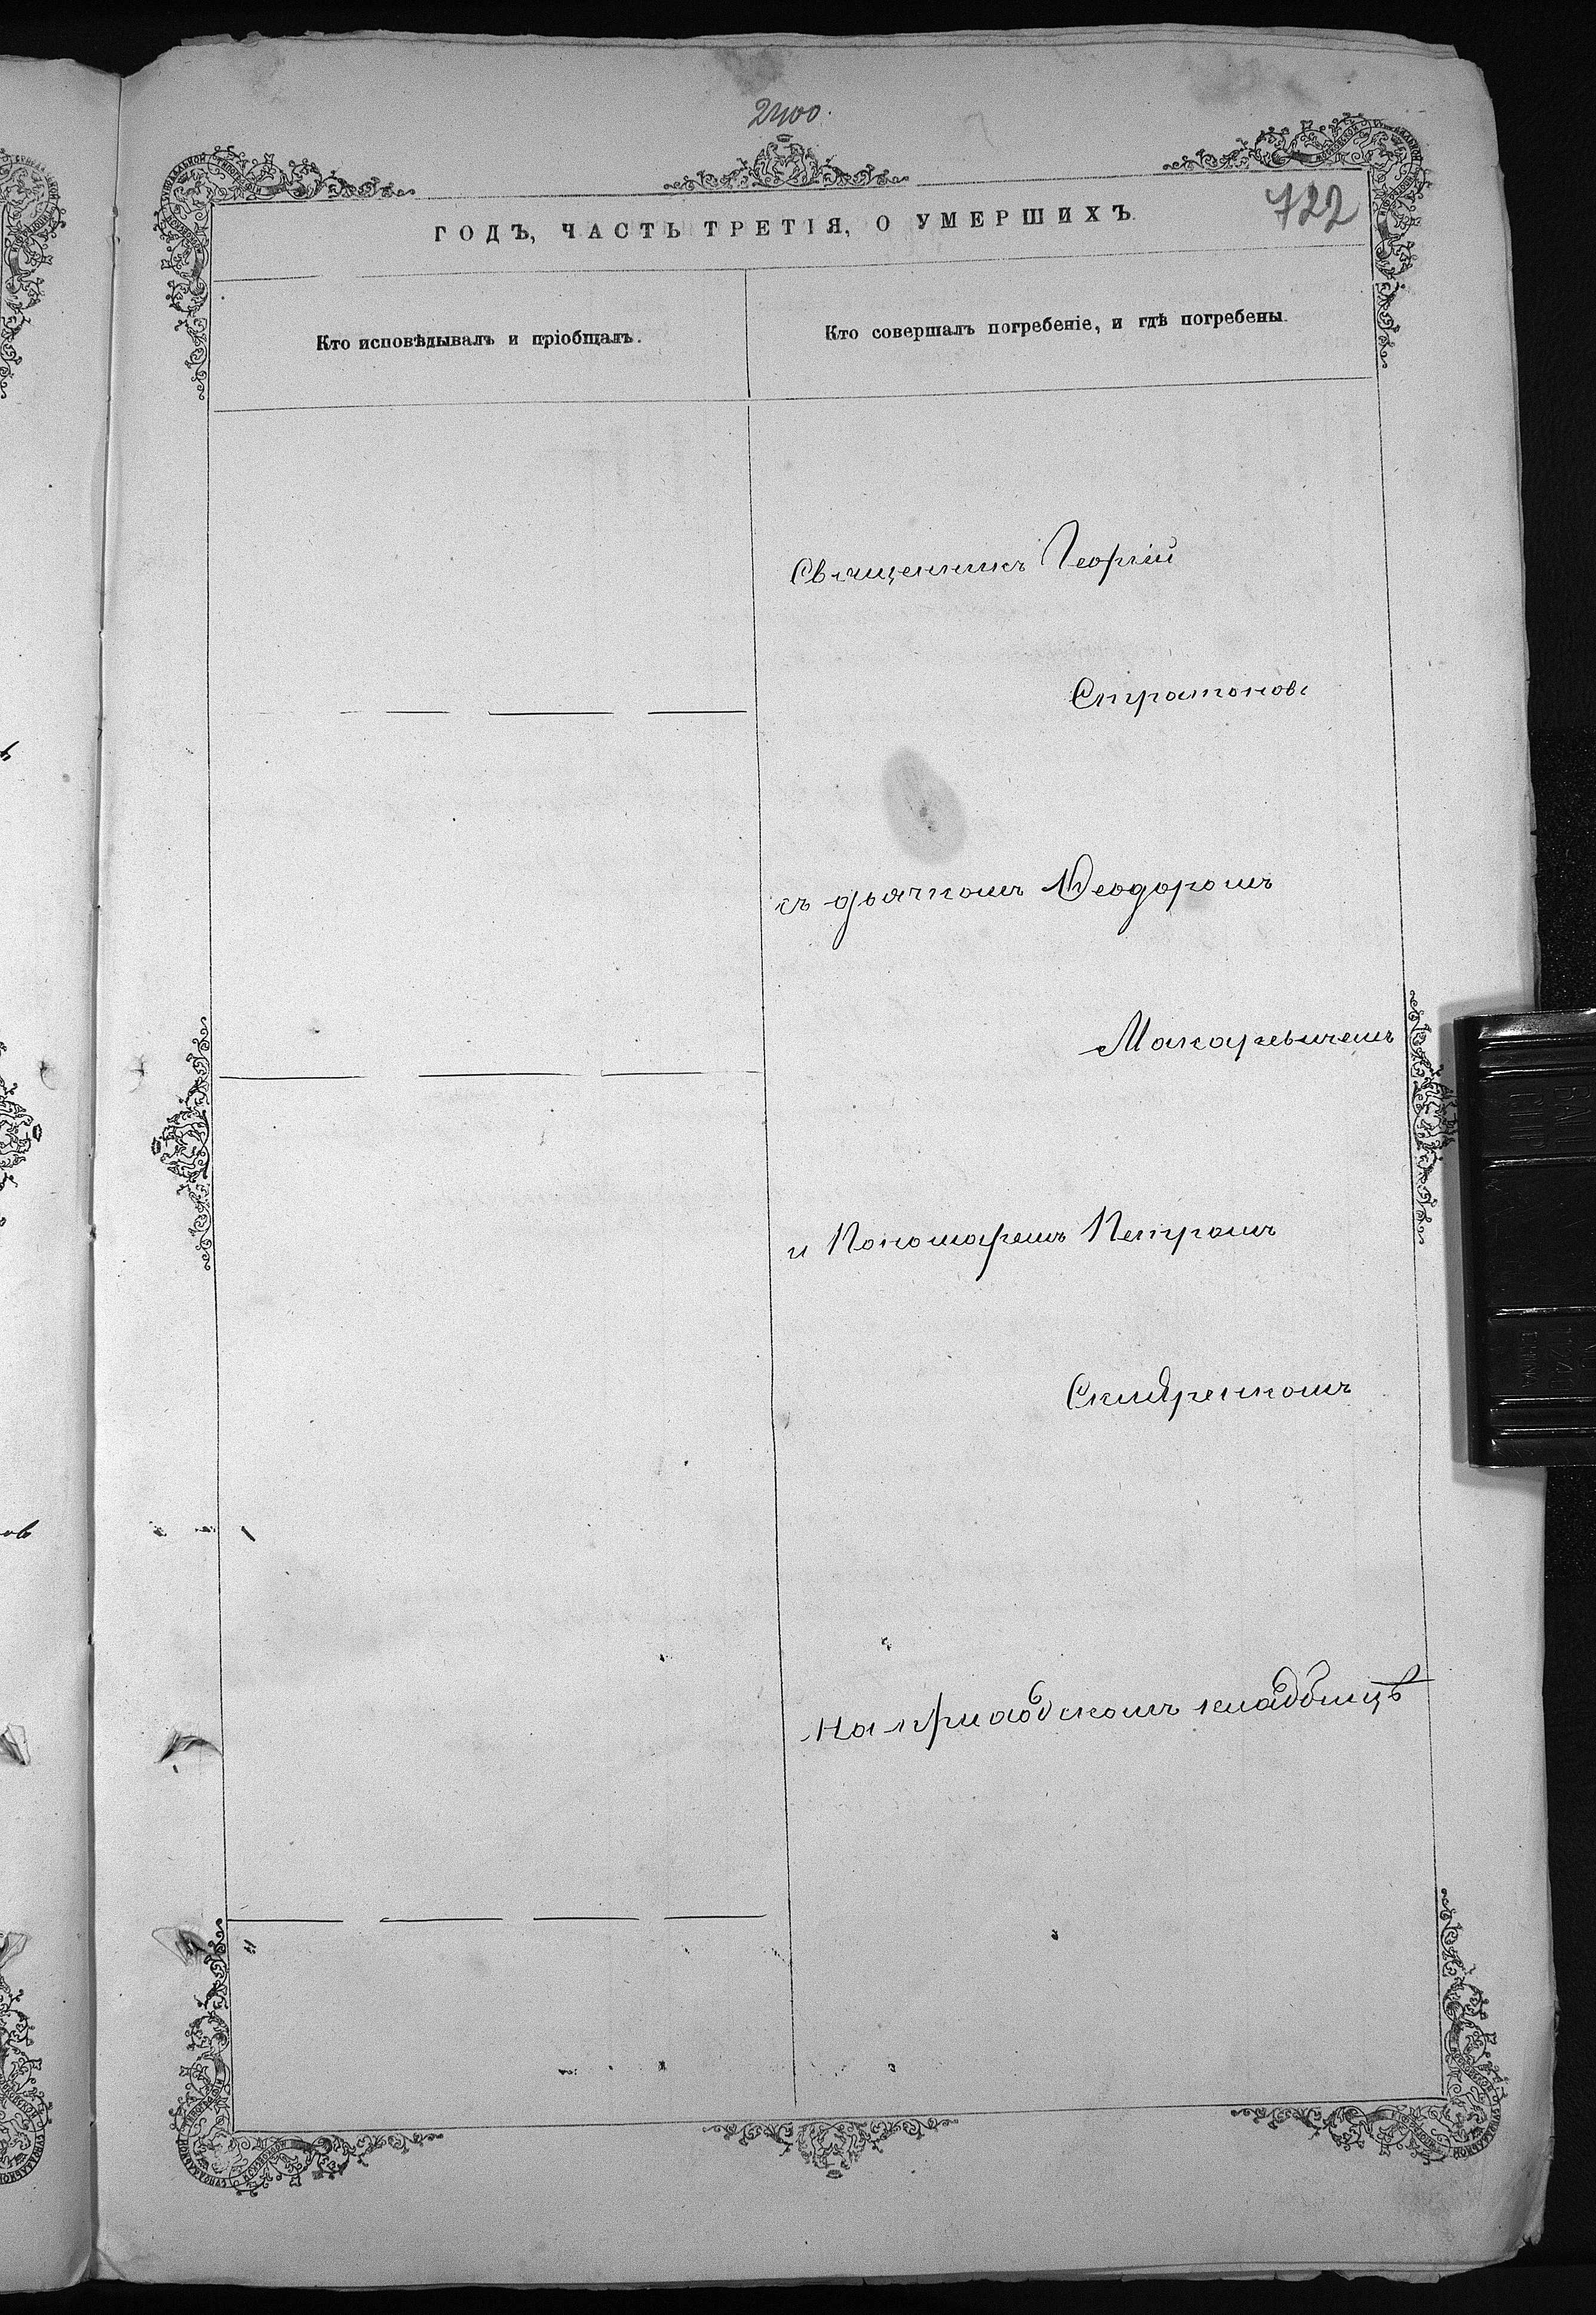 2400.
722
ГОДЪ, ЧАСТЬ ТРЕТІЯ, О УМЕРШИХЪ
Кто исповѣдывалъ и пріобщалъ.
Кто совершалъ погребеніе, и гдѣ погребены.
Священникъ Георгій
Стратоновъ
съ дьячкомъ Ѳеодоромъ
Макаревичемъ
и Пономаремъ Петромъ
на приходскомъ кладбищѣ